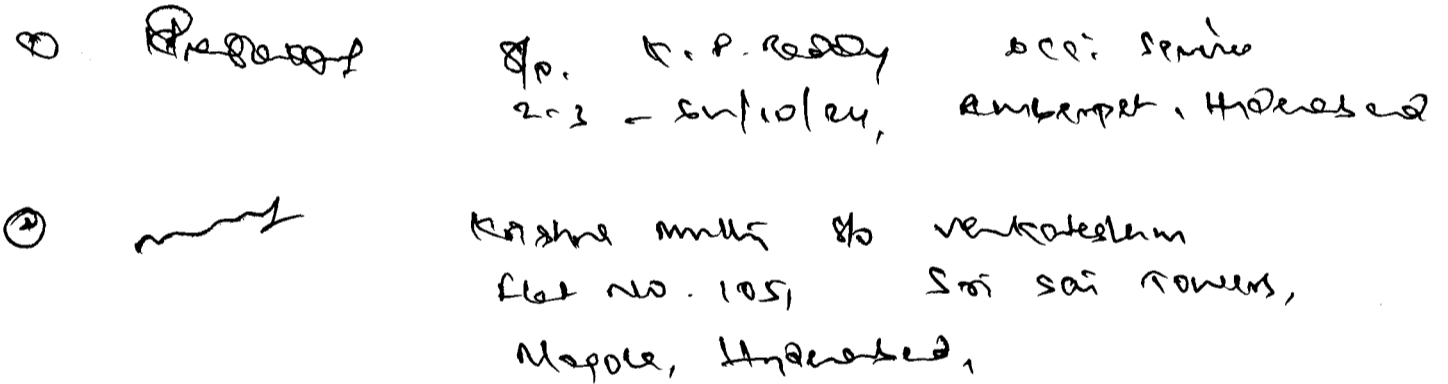 ① S/o. K. P. Reddy occ: Service
2-3-54/10/24, Amberpet, Hyderabad
② Krishna Murthy S/o Venkatesham
Flat No. 105, Sri Sai Towers,
Nagole, Hyderabad,